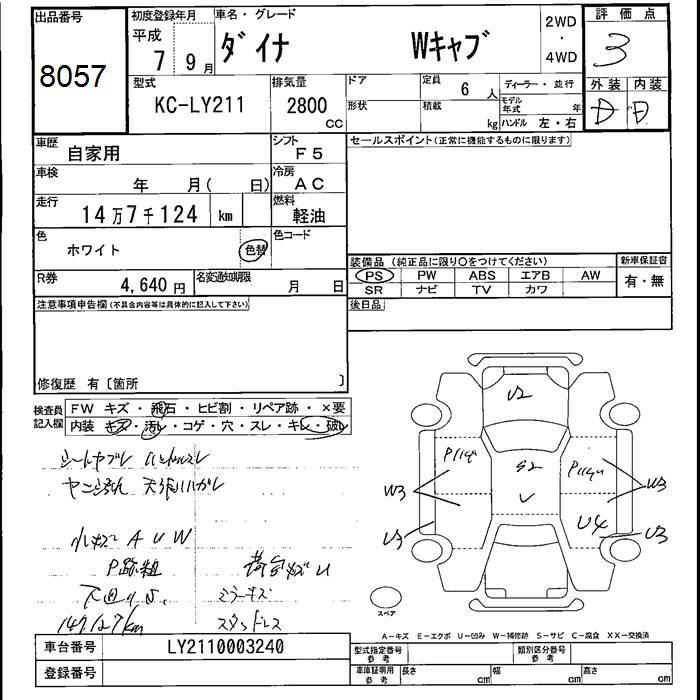 出品番号
8057
初度登録年月
平成
7 9月
車名・グレード
ダイナ Wキャブ
2WD
・
4WD
評価点
3
外装 内装
D D
型式
KC-LY211
排気量
2800
CC
ドア
形状
定員
6 人
積載
kg
ディーラー・並行
モデル年式 年
ハンドル 左・右
車歴
自家用
シフト
F5
車検
年 月( 日)
冷房
AC
走行
14万7千124 km
燃料
軽油
色
ホワイト
色替
色コード
R券
4,640 円
名変通知期限
月 日
セールスポイント(正常に機能するものに限ります)
装備品(純正品に限り○をつけてください)
PS PW ABS エアB AW
SR ナビ TV カワ
新車保証書
有・無
後日品
注意事項申告欄(不具合内容等は具体的に記入して下さい)
修復歴 有〔箇所 〕
検査員記入欄
FW キズ・飛石・ヒビ割・リペア跡・×要
内装 キズ・汚れ・コゲ・穴・スレ・キレ・破レ
シートヤブレ ハンドルスレ
天張ハガレ
小キズ A U W
P跡粗
荷台キズU
下廻りS.
ミラーキズ
147127km
スタッドレス
U2
S2
U
W3
W3
U3
U4
U3
スペア
A-キズ E-エクボ U-凹み W-補修跡 S-サビ C-腐食 XX-交換済
車台番号
LY2110003240
登録番号
型式指定番号
参考
類別区分番号
参考
車庫証明用
参考
長さ cm
幅 cm
高さ cm